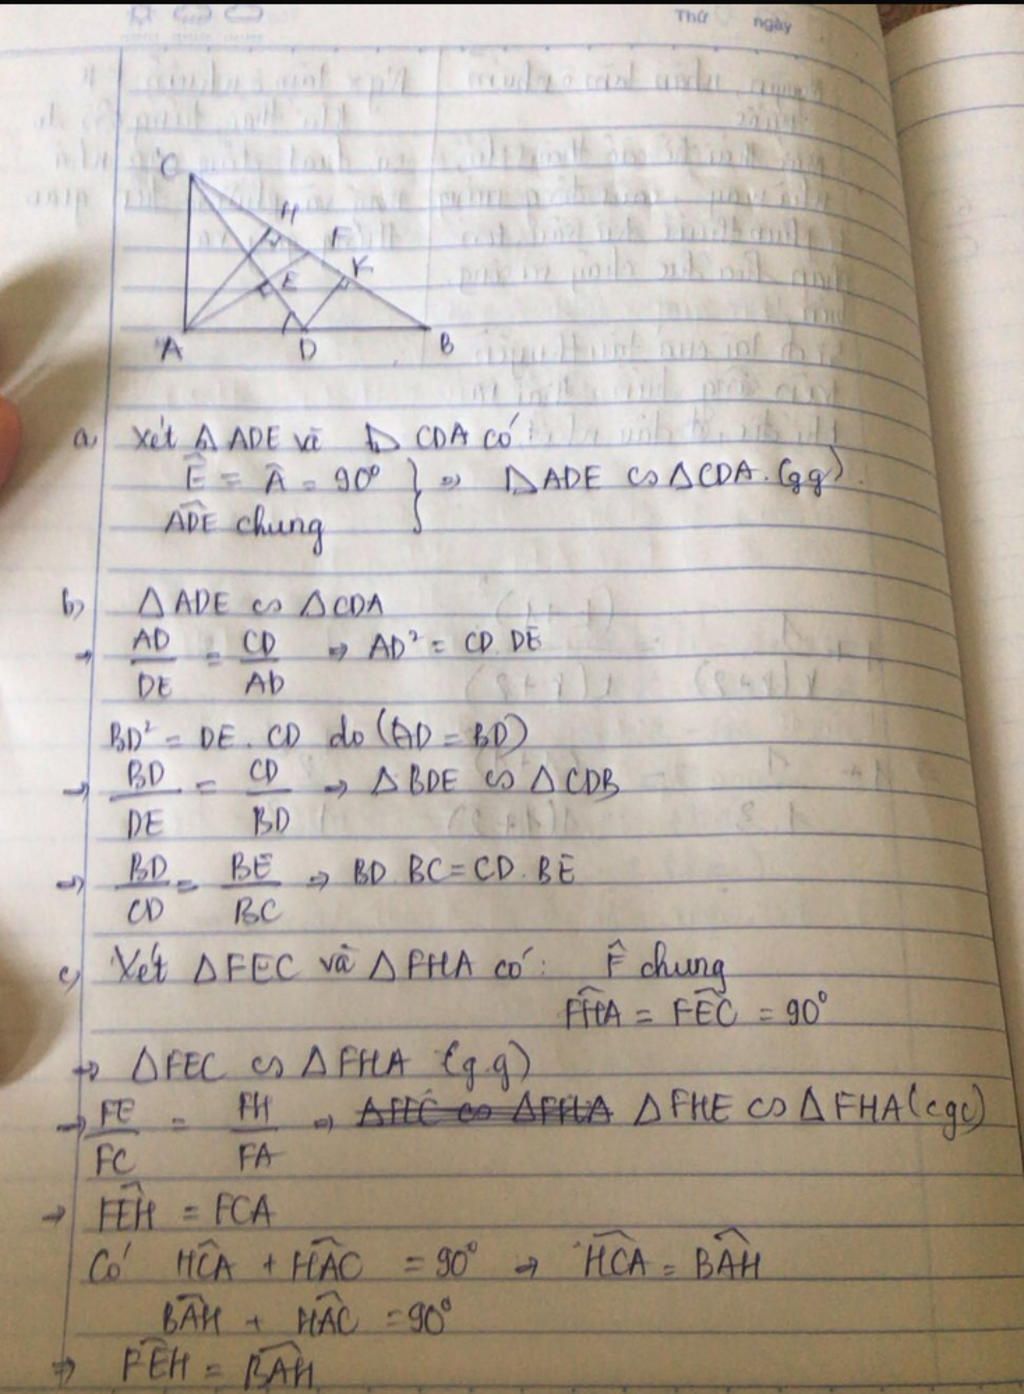 Thứ ngày
C
H
F
K
E
A D B
a, Xét △ ADE và △ CDA có
Ê = Â = 90° } => △ADE ∽ △CDA. (gg).
ADE chung
b, △ ADE ∽ △CDA
→ AD/DE = CD/AD => AD² = CD.DE
BD² = DE. CD do (AD = BD)
→ BD/DE = CD/BD → △ BDE ∽ △ CDB
→ BD/CD = BE/BC → BD.BC = CD.BE
c, Xét △FEC và △FHA có: F̂ chung
FHA = FEC = 90°
→ △FEC ∽ △FHA (g.g)
→ FE/FC = FH/FA → △FEC ∽ △FHA △FHE ∽ △FHA (cgc)
→ FEH = FCA
Có HCA + HAC = 90° → HCA = BAH
BAH + HAC = 90°
=> FEH = BAH